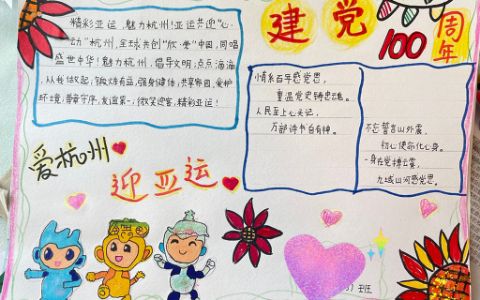 精彩亚运,魅力杭州!亚运共迎"心·
动"杭州,全球共创"欣·荣"中国,同唱
盛世中华!魅力杭州,倡导文明:点点滴滴,
从我做起,锻炼有益,强身健体;共享家园,爱护
环境;遵章守序,友谊第一,微笑迎客,精彩亚运!
爱杭州
迎亚运
建党
100
周年
情系百年感党恩,
重温党史铸忠魂。
人民至上心头记,
万部诗书自有神。
不忘誓言山外震,
初心使命化心身。
一身在党
九域山河感党恩。
班